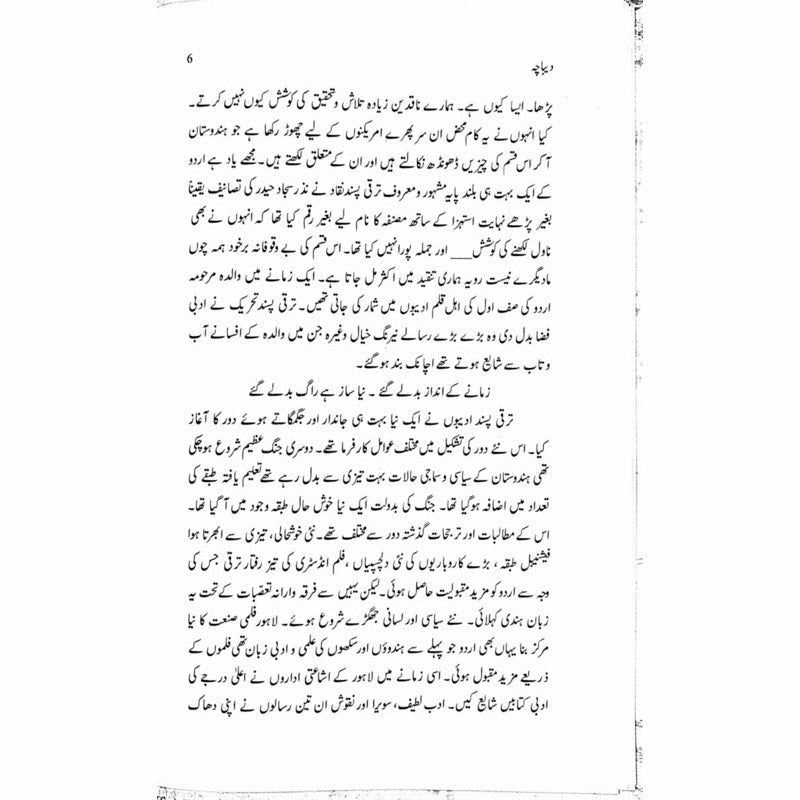 دیباچہ
6
پڑھا۔ ایسا کیوں ہے۔ ہمارے ناقدین زیادہ تلاش و تحقیق کی کوشش کیوں نہیں کرتے۔
کیا انہوں نے یہ کام محض ان سر پھرے امریکنوں کے لیے چھوڑ رکھا ہے جو ہندوستان
آ کر اس قسم کی چیزیں ڈھونڈھ نکالتے ہیں اور ان کے متعلق لکھتے ہیں۔ مجھے یاد ہے اردو
کے ایک بہت ہی بلند پایہ مشہور و معروف ترقی پسند نقاد نے نذر سجاد حیدر کی تصانیف یقیناً
بغیر پڑھے نہایت استہزا کے ساتھ مصنفہ کا نام لیے بغیر رقم کیا تھا کہ انہوں نے بھی
ناول لکھنے کی کوشش ___ اور جملہ پورا نہیں کیا تھا۔ اس قسم کی بے وقوفانہ برخود ہمہ چوں
مادیگرے نیست رویہ ہماری تنقید میں اکثر مل جاتا ہے۔ ایک زمانے میں والدہ مرحومہ
اردو کی صف اول کی اہل قلم ادیبوں میں شمار کی جاتی تھیں۔ ترقی پسند تحریک نے ادبی
فضا بدل دی وہ بڑے بڑے رسالے نیرنگ خیال وغیرہ جن میں والدہ کے افسانے آب
و تاب سے شایع ہوتے تھے اچانک بند ہو گئے۔
زمانے کے انداز بدلے گئے ۔ نیا ساز ہے راگ بدلے گئے
ترقی پسند ادیبوں نے ایک نیا بہت ہی جاندار اور جگمگاتے ہوئے دور کا آغاز
کیا۔ اس نئے دور کی تشکیل میں مختلف عوامل کار فرما تھے۔ دوسری جنگ عظیم شروع ہو چکی
تھی ہندوستان کے سیاسی و سماجی حالات بہت تیزی سے بدل رہے تھے تعلیم یافتہ طبقے کی
تعداد میں اضافہ ہو گیا تھا۔ جنگ کی بدولت ایک نیا خوش حال طبقہ وجود میں آ گیا تھا۔
اس کے مطالبات اور ترجحات گذشتہ دور سے مختلف تھے۔ نئی خوشحالی، تیزی سے ابھرتا ہوا
فیشنیبل طبقہ ، بڑے کاروباریوں کی نئی دلچسپیاں ، فلم انڈسٹری کی تیز رفتار ترقی جس کی
وجہ سے اردو کو مزید مقبولیت حاصل ہوئی۔ لیکن یہیں سے فرقہ وارانہ تعصّبات کے تحت یہ
زبان ہندی کہلائی۔ نئے سیاسی اور لسانی جھگڑے شروع ہوئے۔ لاہور فلمی صنعت کا نیا
مرکز بنا یہاں بھی اردو جو پہلے سے ہندوؤں اور سکھوں کی علمی و ادبی زبان تھی فلموں کے
ذریعے مزید مقبول ہوئی۔ اسی زمانے میں لاہور کے اشاعتی اداروں نے اعلیٰ درجے کی
ادبی کتابیں شایع کیں۔ ادب لطیف، سویرا اور نقوش ان تین رسالوں نے اپنی دھاک